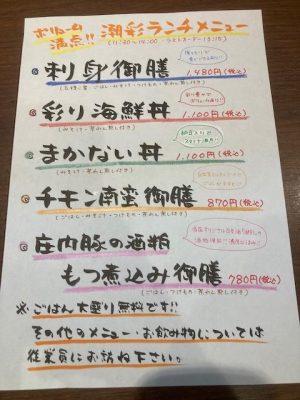 ボリューム満点!! 潮彩ランチメニュー
(11:30〜14:00 ラストオーダー13:15)
刺身御膳 1,480円(税込)
みそ汁・つけもの・茶わん蒸し付き)
彩り海鮮丼 1,100円(税込)
(みそ汁・つけもの・茶わん蒸し付き)
まかない丼 1,100円(税込)
(みそ汁・つけもの・茶わん蒸し付き)
チキン南蛮御膳 870円(税込)
(ごはん・みそ汁・つけもの・茶わん蒸し付き)
庄内豚の酒粕
もつ煮込み御膳 780円(税込)
(ごはん・つけもの・茶わん蒸し付き)
※ごはん大盛り無料です!!
その他のメニュー・お飲み物については
従業員にお訪ね下さい。